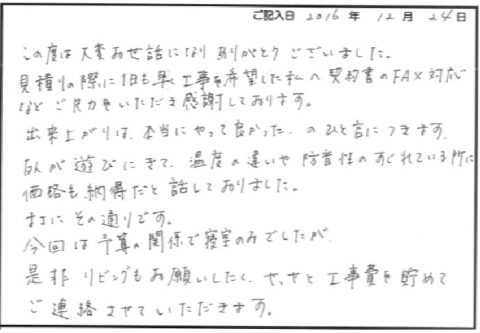 ご記入日 2016年 12月 24日
この度は大変お世話になりありがとうございました。
見積りの際に1日も早く工事を希望した私へ契約書のFAX対応
などご尽力をいただき感謝しております。
出来上がりは、本当にやって良かった。のひと言につきます。
友人が遊びにきて、温度の違いや防音性のすぐれている所に
価格も納得だと話しておりました。
まさにその通りです。
今回は予算の関係で寝室のみでしたが、
是非リビングもお願いしたく、せっせと工事費を貯めて
ご連絡させていただきます。